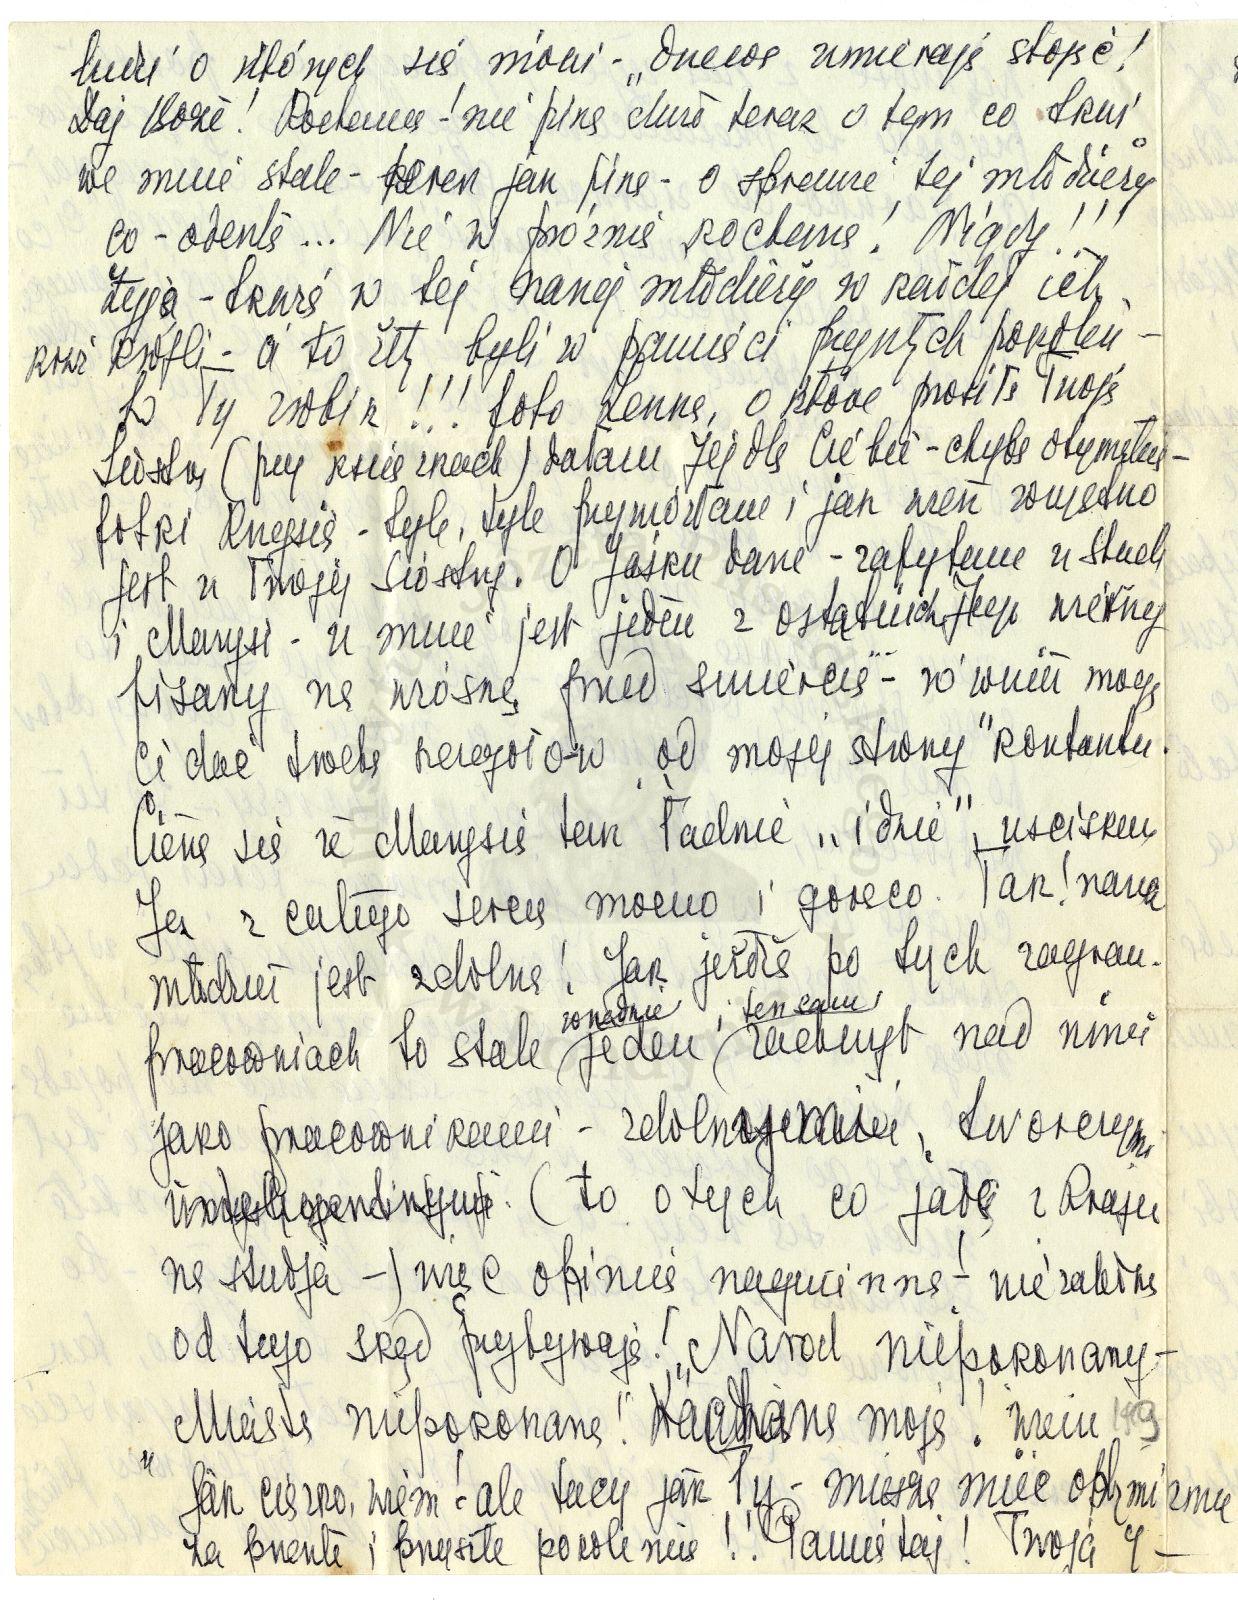 ludzi o których się mówi - „Drzewa umierają stojąc!
Daj Boże! Kochana! nie piszę dużo teraz o tem co tkwi
we mnie stale - jak piszę - o sprawie tej młodzieży
co - odeszła ... Nie w próżnię kochana! Nigdy!!!
żyją - tkwią w tej naszej młodzieży w każdej ich
krwi kropli - a to żeby byli w pamięci przyszłych pokoleń -
to Ty robisz!!! foto Żenne, o które prosiła Twoja
Siostra (przy książkach) dałam Jej dla Ciebie - chyba otrzymałaś -
fotki Krzysia - tyle, tyle przymiotów i jak wiem
jest u Twojej Siostry. O Jaśku dane - zapytam u Stach
i Marysi - u mnie jest jeden z ostatnich Jego wierszy
pisany na wiosnę przed śmiercią - również mogę
Ci dać trochę szczegółów od mojej strony "kontaktu.
Cieszę się że Marysia tak ładnie „idzie", uściskaj
Ją z całego serca mocno i gorąco. Tak! nasza
młodzież jest zdolna! Jak jeździ po tych zagran.
wszędzie ten sam
pracowniach to stale jeden zachwyt nad nimi
jako pracownikami - , twórczymi
(to o tych co jadą z Kraju
na studja -) więc opinię nagminną! niezależną
od tego skąd przybywają! „Naród niepokonany -
Miasto niepokonane!" Kochana moja! wiem 149
jak ciężko, wiem! ale tacy jak Ty - muszą mieć optymizm
za przeszłe i przyszłe pokolenie!! Pamiętaj! Twoja Y -